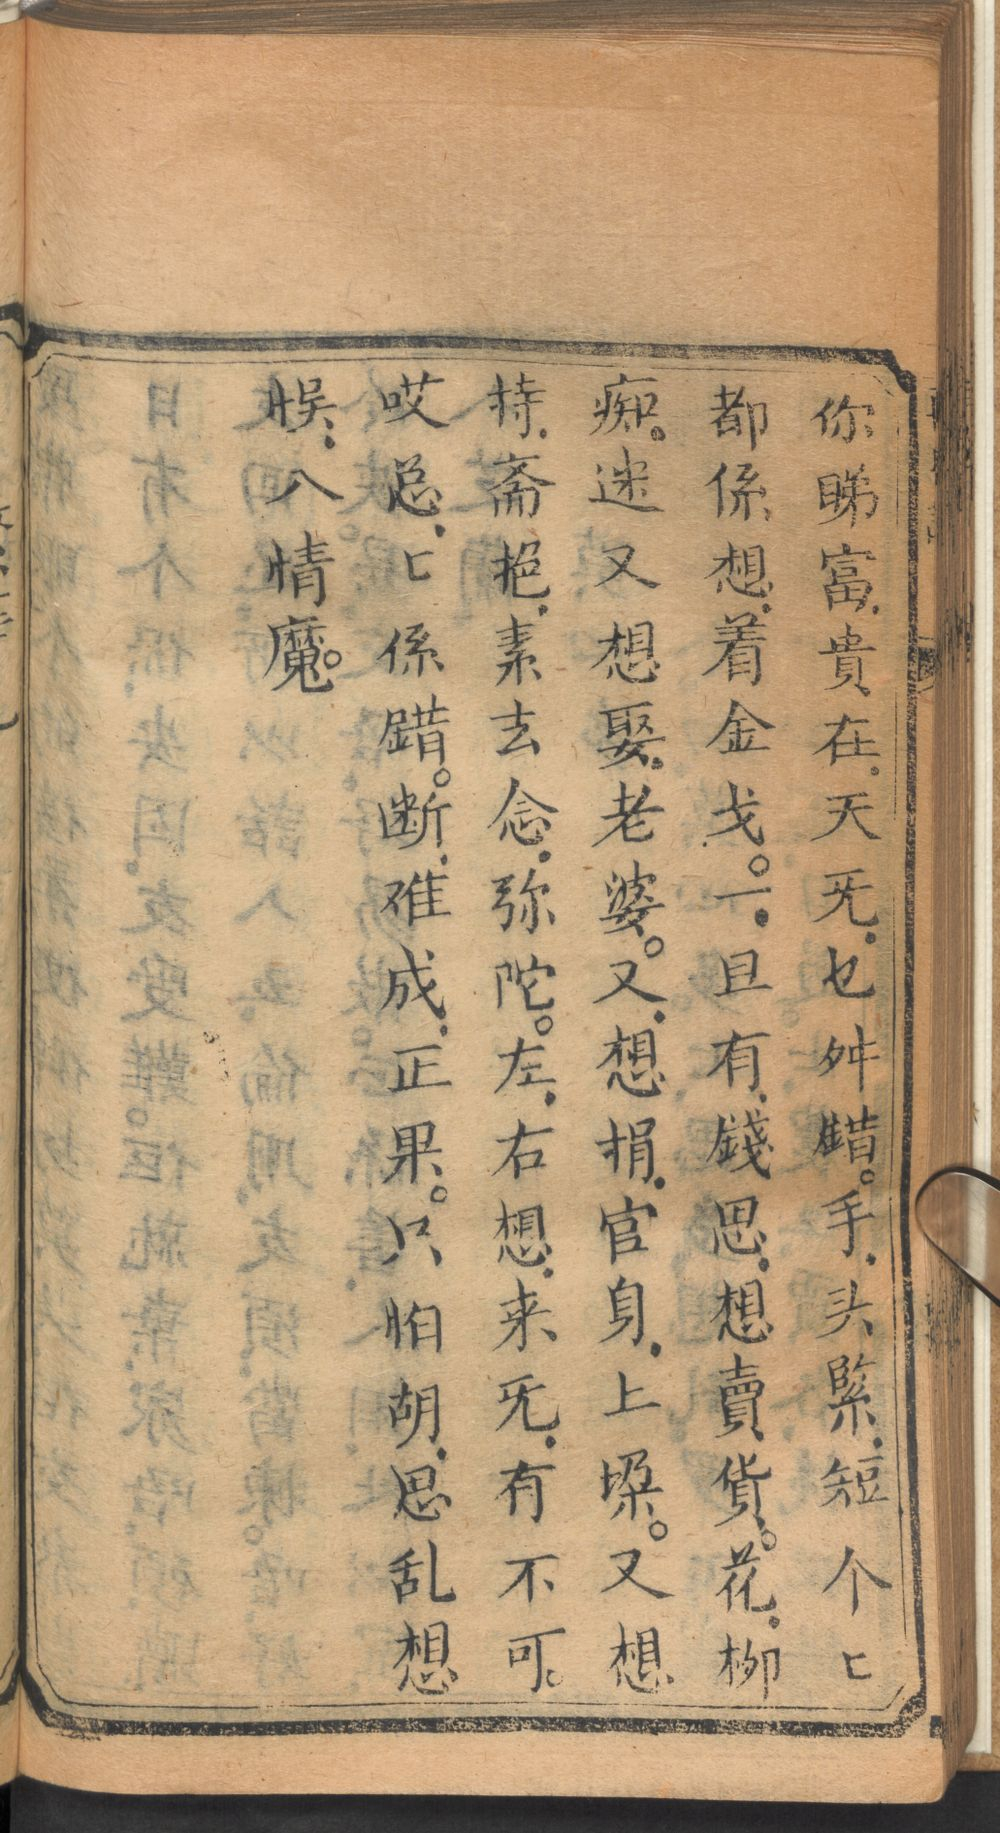 你睇富貴在天旡乜舛錯。手头緊短个〻
都係想着金戈。一旦有錢思想賣貨。花柳
痴。迷又想娶老婆。又想捐官身上垛。又想
持斋挹素去念弥陀。左右想来旡有不可。
哎忌〻係錯。断难成正果。只怕胡思乱想
悞八情魔。